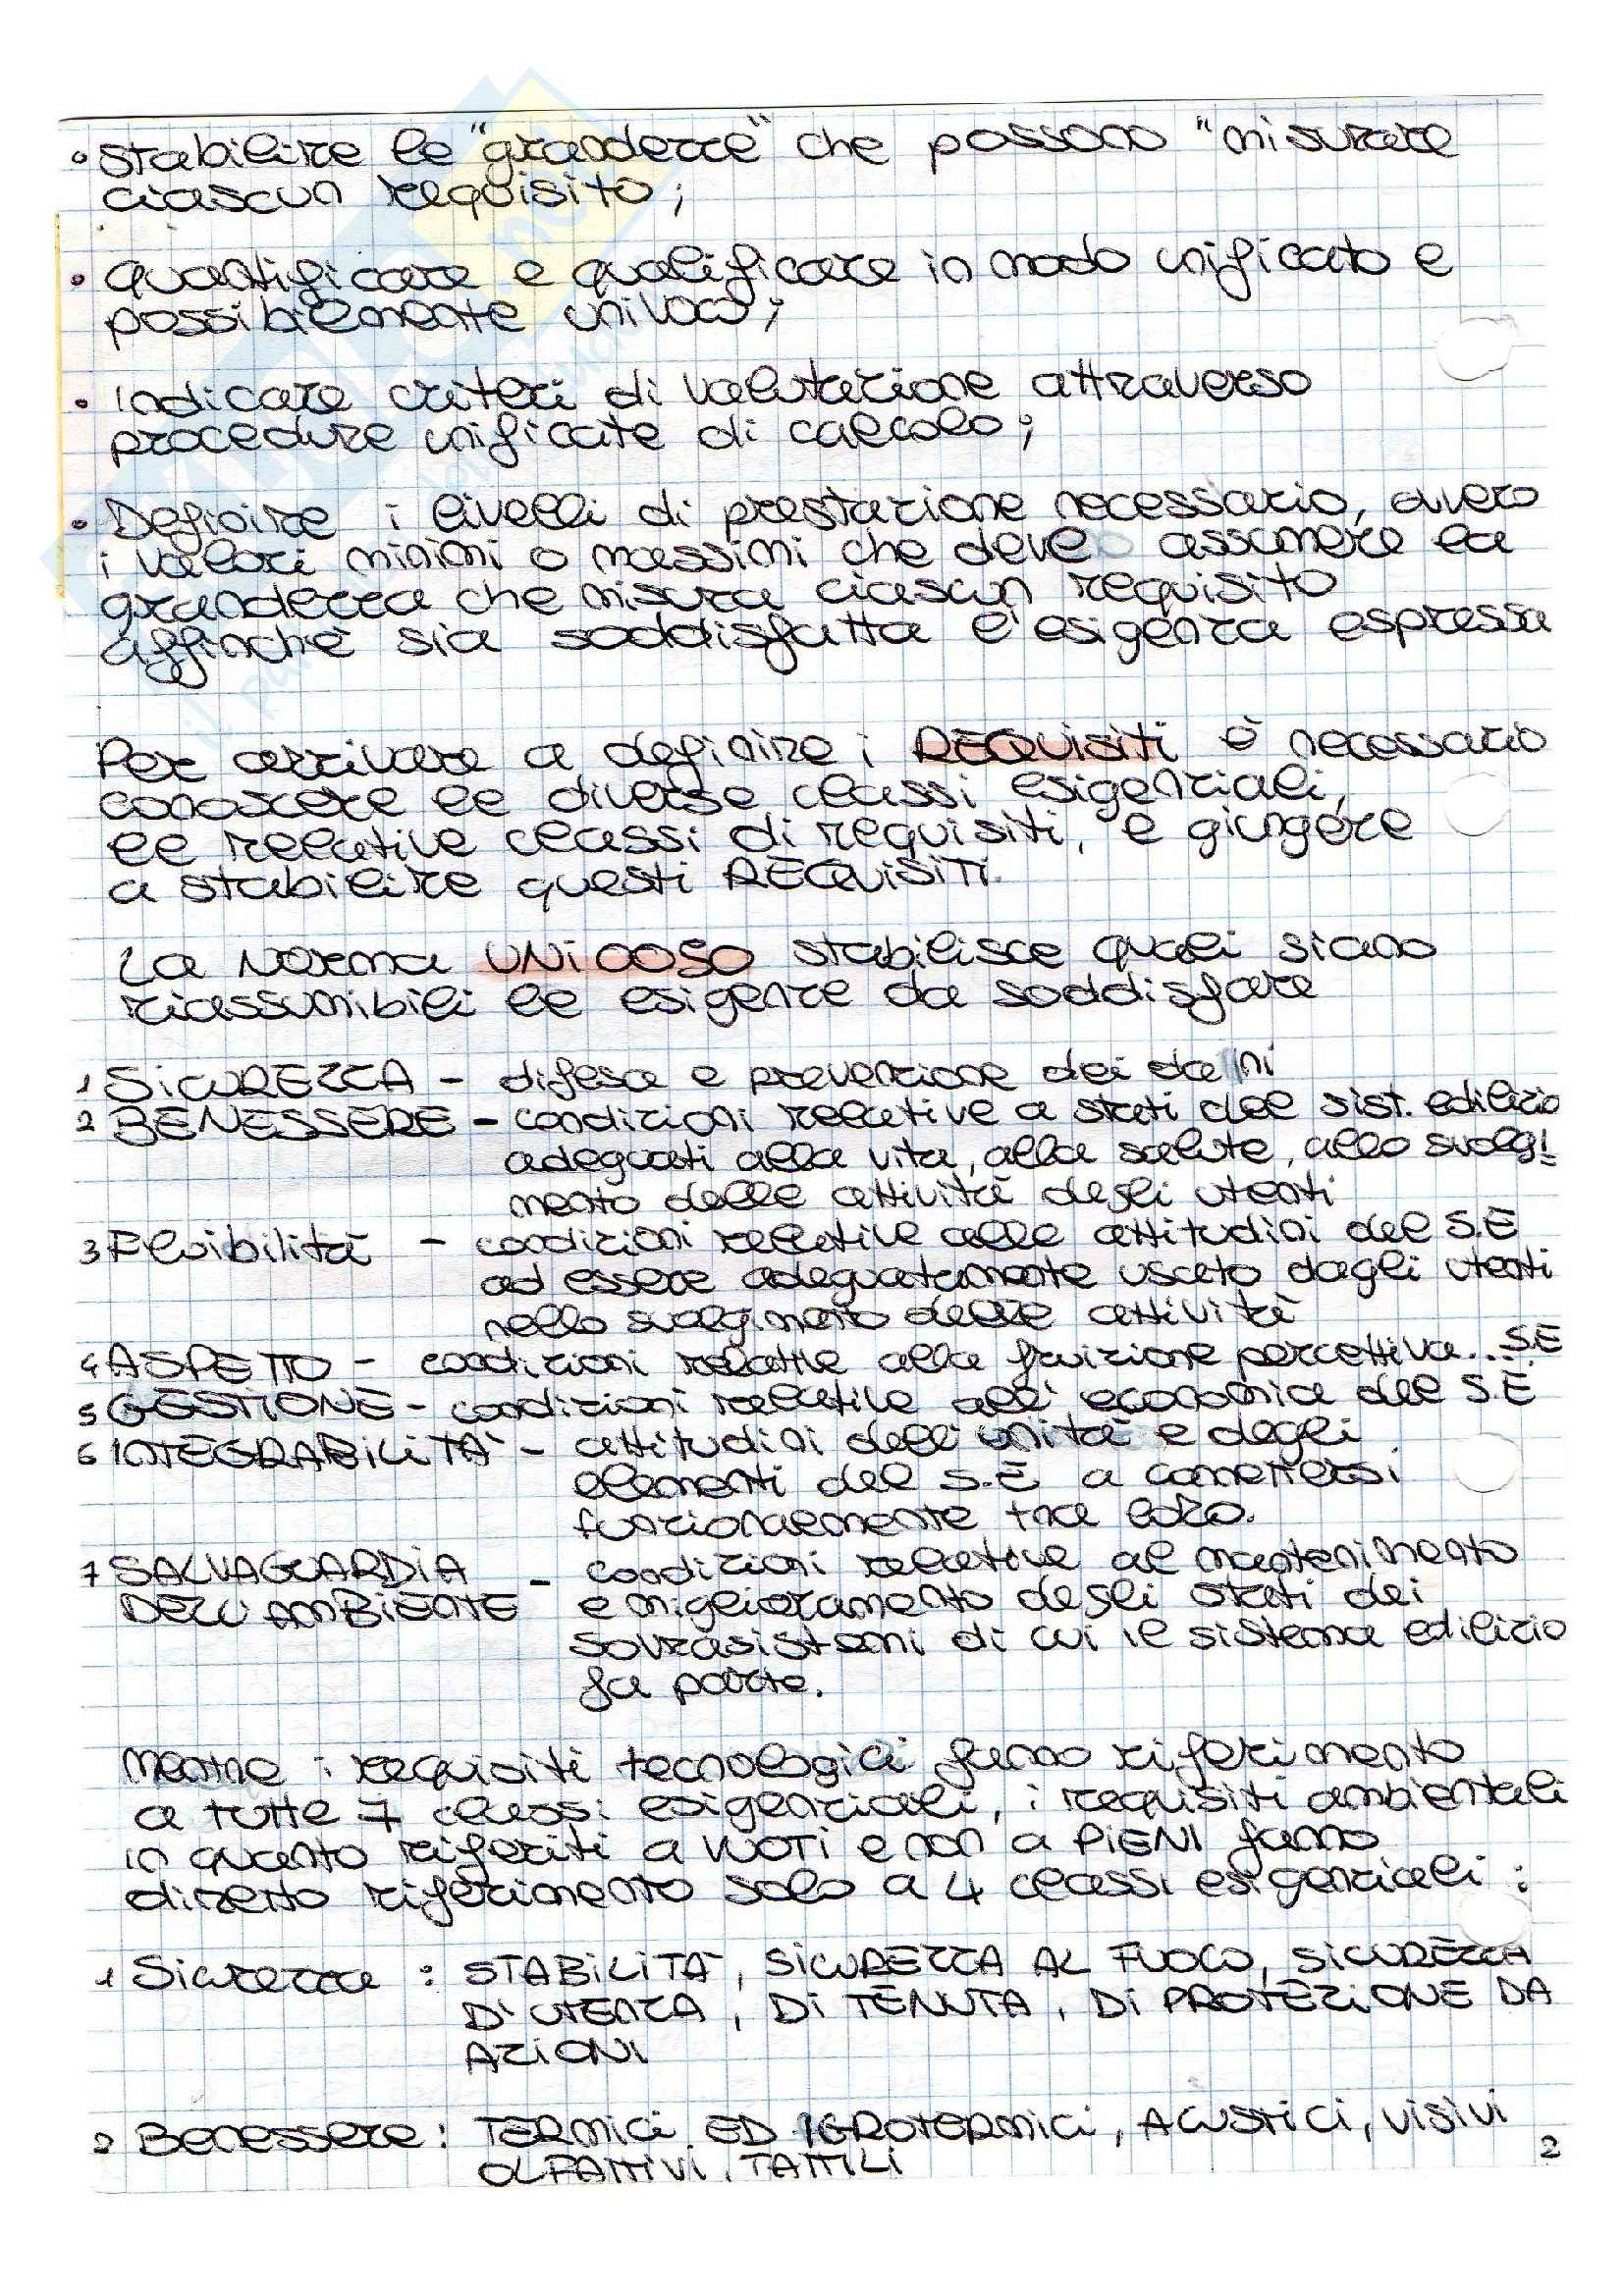 • stabilire le "grandezze" che possono "misurare
ciascun requisito;
• quantificare e qualificare in modo unificato e
possibilmente univoco;
• Indicare criteri di valutazione attraverso
procedure unificate di calcolo;
• Definire i livelli di prestazione necessario, ovvero
i valori minimi o massimi che deve assumere la
grandezza che misura ciascun requisito
affinchè sia soddisfatta l'esigenza espressa
Per arrivare a definire i REQUISITI è necessario
conoscere le diverse classi esigenziali,
le relative classi di requisiti, e giungere
a stabilire questi REQUISITI.
La Norma UNI 0050 stabilisce quali siano
riassumibili le esigenze da soddisfare
1 SICUREZZA - difesa e prevenzione dei danni
2 BENESSERE - condizioni relative a stati del sist. edilizio
adeguati alla vita, alla salute, allo svolgi
mento delle attività degli utenti
3 Flsibilità - condizioni relative alle attitudini del S.E
ad essere adeguatamente usato dagli utenti
nello svolgimento delle attività
4 ASPETTO - condizioni relative alla fruizione percettiva... S.E
5 GESTIONE - condizioni relative all'economia del S.E
6 INTEGRABILITÀ - attitudini dell'unità e degli
elementi del S.E a connettersi
funzionalmente tra loro.
7 SALVAGUARDIA - condizioni relative al mantenimento
DELL'AMBIENTE e miglioramento degli stati dei
sovrasistemi di cui il sistema edilizio
fa parte.
Mentre i requisiti tecnologici fanno riferimento
a tutte 7 classi esigenziali, i requisiti ambientali
in quanto riferiti a VUOTI e non a PIENI fanno
diretto riferimento solo a 4 classi esigenziali:
1 Sicurezza : STABILITÀ, SICUREZZA AL FUOCO, SICUREZZA
D'UTENZA, DI TENUTA, DI PROTEZIONE DA
AZIONI
2 Benessere : TERMICI ED IGROTERMICI, ACUSTICI, VISIVI
OLFATTIVI, TATTILI
2